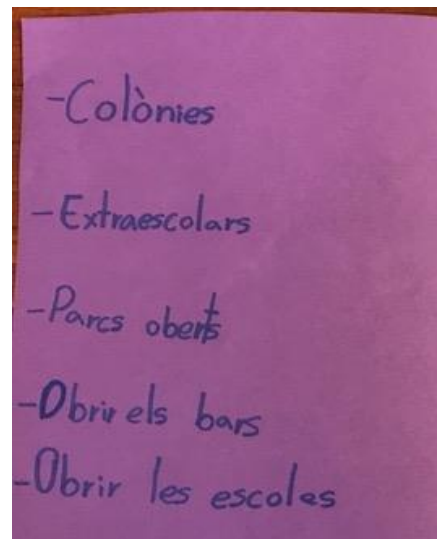 -Colònies
-Extraescolars
-Parcs oberts
-Obrir els bars
-Obrir les escoles